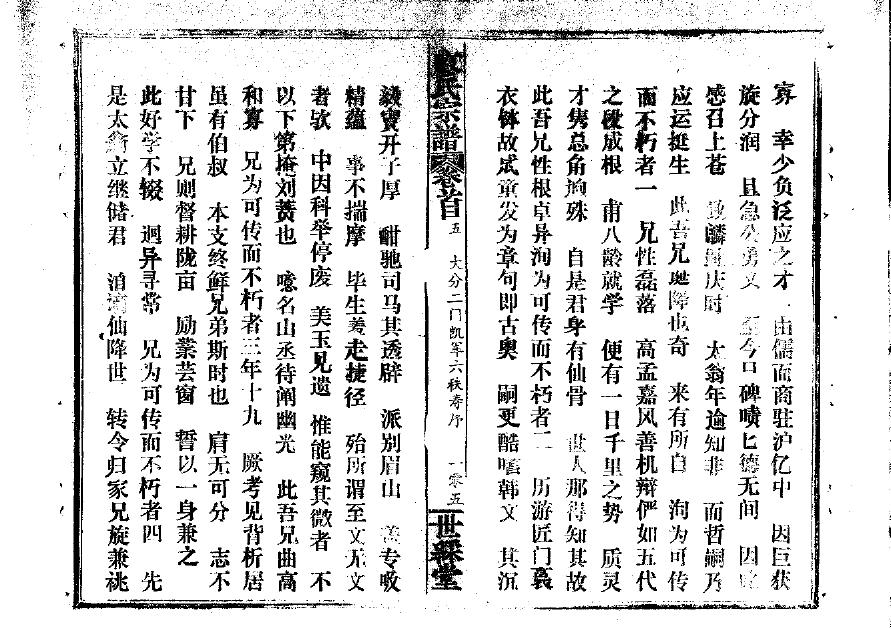 寡 幸少负泛应之才 由儒而商驻沪亿中 因巨获
旋分润 且急公勇义 至今口碑啧匕德无间 因
感召上苍 麟庆时 太翁年逾知非 而哲嗣乃
应运挺生 此吾兄诞降也奇 来有所自 洵为可传
而不朽者一 兄性磊落 高孟嘉风善机辩俨如五代
之成根 甫八龄就学 便有一日千里之势 质灵
才隽总角殊 自是君身有仙骨 世人那得知其故
此吾兄性根卓异洵为可传而不朽者二 历游匠门裒
衣钵故成童发为章句即古奥 嗣更酷嗜韩文 其沉
氏宗谱 卷首 五 大分二门凯军六秩寿序 一零五 世綵堂
毅宝开子厚 酣驰司马其透辟 派别眉山 善专吸
精蕴 事不揣摩 毕生羞走捷径 殆所谓至文无文
者欤 中因科举停废 美玉见遗 惟能窥其微者 不
以下第掩刘蕡也 噫名山丞待阐幽光 此吾兄曲高
和寡 兄为可传而不朽者三年十九 厥考见背析居
虽有伯叔 本支终鲜兄弟斯时也 肩无可分 志不
甘下 兄则督耕陇亩 励业芸窗 誓以一身兼之
此好学不辍 迥异寻常 兄为可传而不朽者四 先
是太翁立继储君 洎谪仙降世 转令归家兄旋兼祧